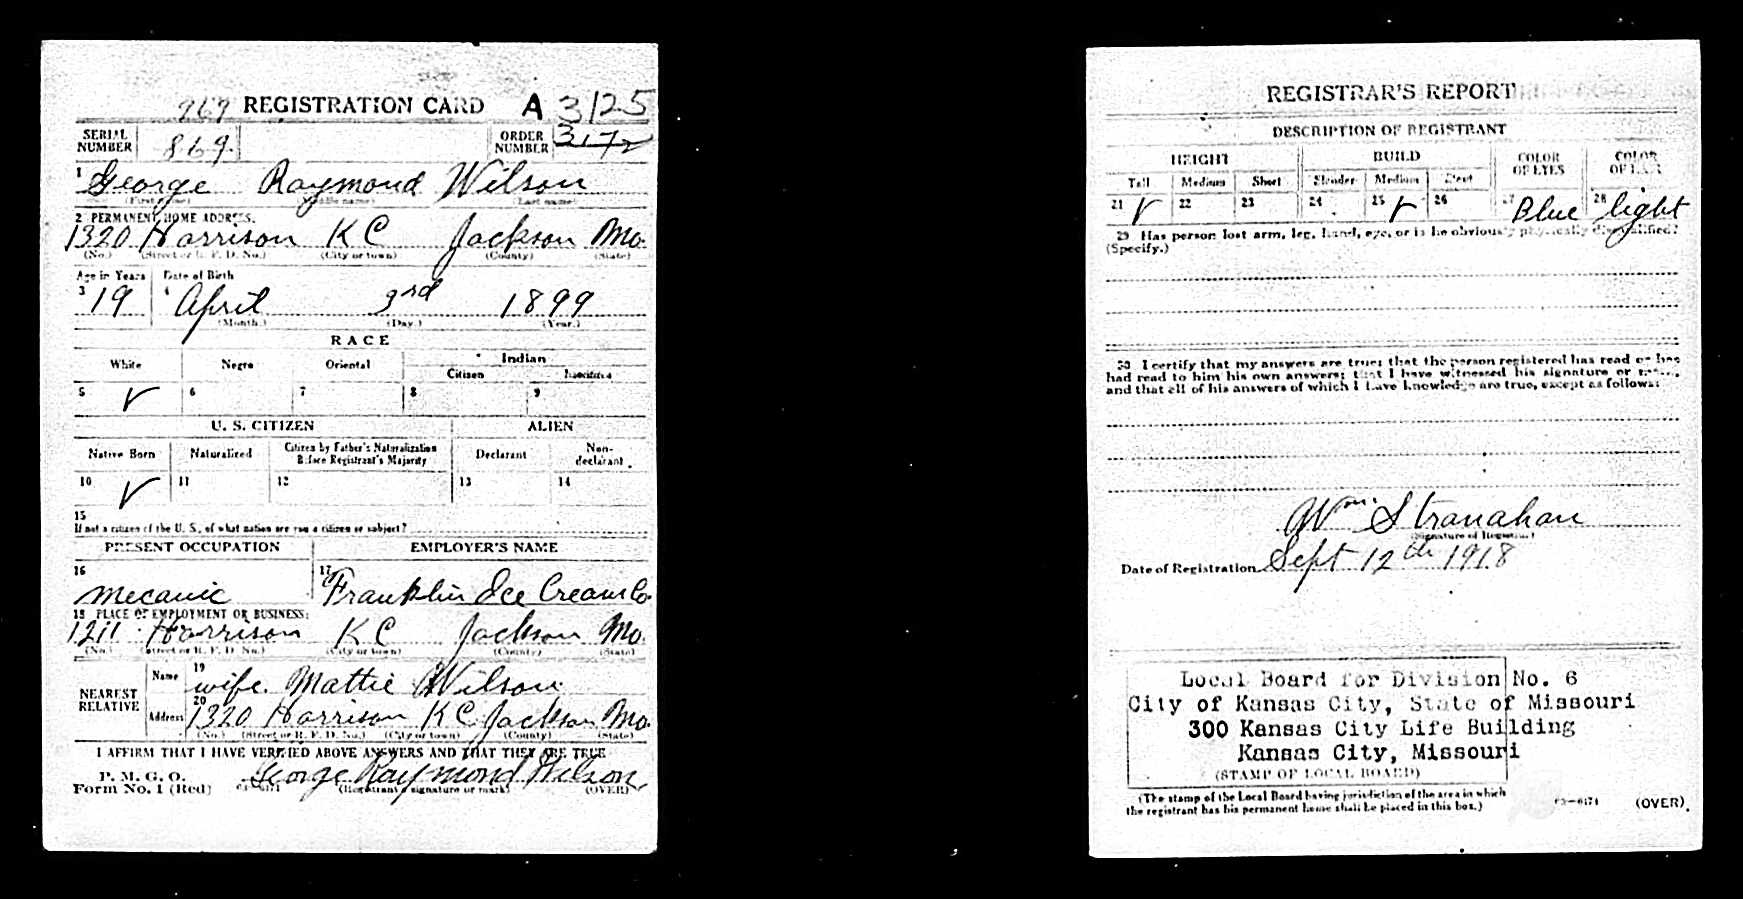 969 REGISTRATION CARD A 3125
SERIAL NUMBER 869. ORDER NUMBER 3172
1 George Raymond Wilson
(First name) (Middle name) (Last name)
2 PERMANENT HOME ADDRESS:
1320 Harrison KC Jackson Mo.
(No.) (Street or R. F. D. No.) (City or town) (County) (State)
Age in Years Date of Birth
3 19 4 April 3rd 1899
(Month.) (Day.) (Year.)
RACE
White Negro Oriental Indian
Citizen
5 ✓ 6 7 8 9
U. S. CITIZEN ALIEN
Native Born Naturalized Citizen by Father's Naturalization Before Registrant's Majority Declarant Non-declarant
10 ✓ 11 12 13 14
15
If not a citizen of the U. S., of what nation are you a citizen or subject?
PRESENT OCCUPATION EMPLOYER'S NAME
16 mecanic 17 Franklin Ice Cream Co.
18 PLACE OF EMPLOYMENT OR BUSINESS:
1211 Harrison KC Jackson Mo.
(No.) (Street or R. F. D. No.) (City or town) (County) (State)
NEAREST RELATIVE Name 19 wife. Mattie Wilson
Address 20 1320 Harrison KC Jackson Mo.
(No.) (Street or R. F. D. No.) (City or town) (County) (State)
I AFFIRM THAT I HAVE VERIFIED ABOVE ANSWERS AND THAT THEY ARE TRUE
P. M. G. O.
Form No. 1 (Red) George Raymond Wilson
(Registrant's signature or mark) (OVER)
REGISTRAR'S REPORT
DESCRIPTION OF REGISTRANT
HEIGHT BUILD COLOR OF EYES COLOR OF HAIR
Tall Medium Short Slender Medium Stout
21 ✓ 22 23 24 25 ✓ 26 27 Blue 28 light
29 Has person lost arm, leg, hand, eye, or is he obviously physically disqualified?
(Specify.)
30 I certify that my answers are true; that the person registered has read or has
had read to him his own answers; that I have witnessed his signature or mark,
and that all of his answers of which I have knowledge are true, except as follows:
Wm Stranahan
(Signature of Registrar)
Date of Registration Sept 12th 1918
Local Board for Division No. 6
City of Kansas City, State of Missouri
300 Kansas City Life Building
Kansas City, Missouri
(STAMP OF LOCAL BOARD)
(The stamp of the Local Board having jurisdiction of the area in which
the registrant has his permanent home shall be placed in this box.)
03-6171 (OVER)